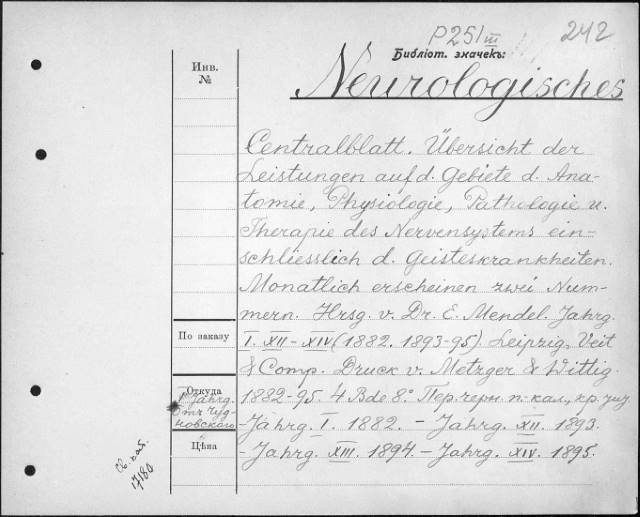 P251 III
242
Библіот. значекъ:
Инв.
№
Neurologisches
Centralblatt. Übersicht der
Leistungen auf d. Gebiete d. Ana-
tomie, Physiologie, Pathologie u.
Therapie des Nervensystems ein-
schliesslich d. Geisteskrankheiten.
Monatlich erscheinen zwei Num-
mern. Hrsg. v. Dr. E. Mendel. Jahrg.
По заказу
I. XII-XIV (1882. 1893-95). Leipzig, Veit
& Comp. Druck v. Metzger & Wittig.
Откуда
I Jahrg.
Отъ Чуд-
новскаго
1882-95. 4 Bde 8°. Пер. черн. п. кал., кр. уг.
-Jahrg. I. 1882. - Jahrg. XII. 1893.
Цѣна
-Jahrg. XIII. 1894. - Jahrg. XIV. 1895.
17180